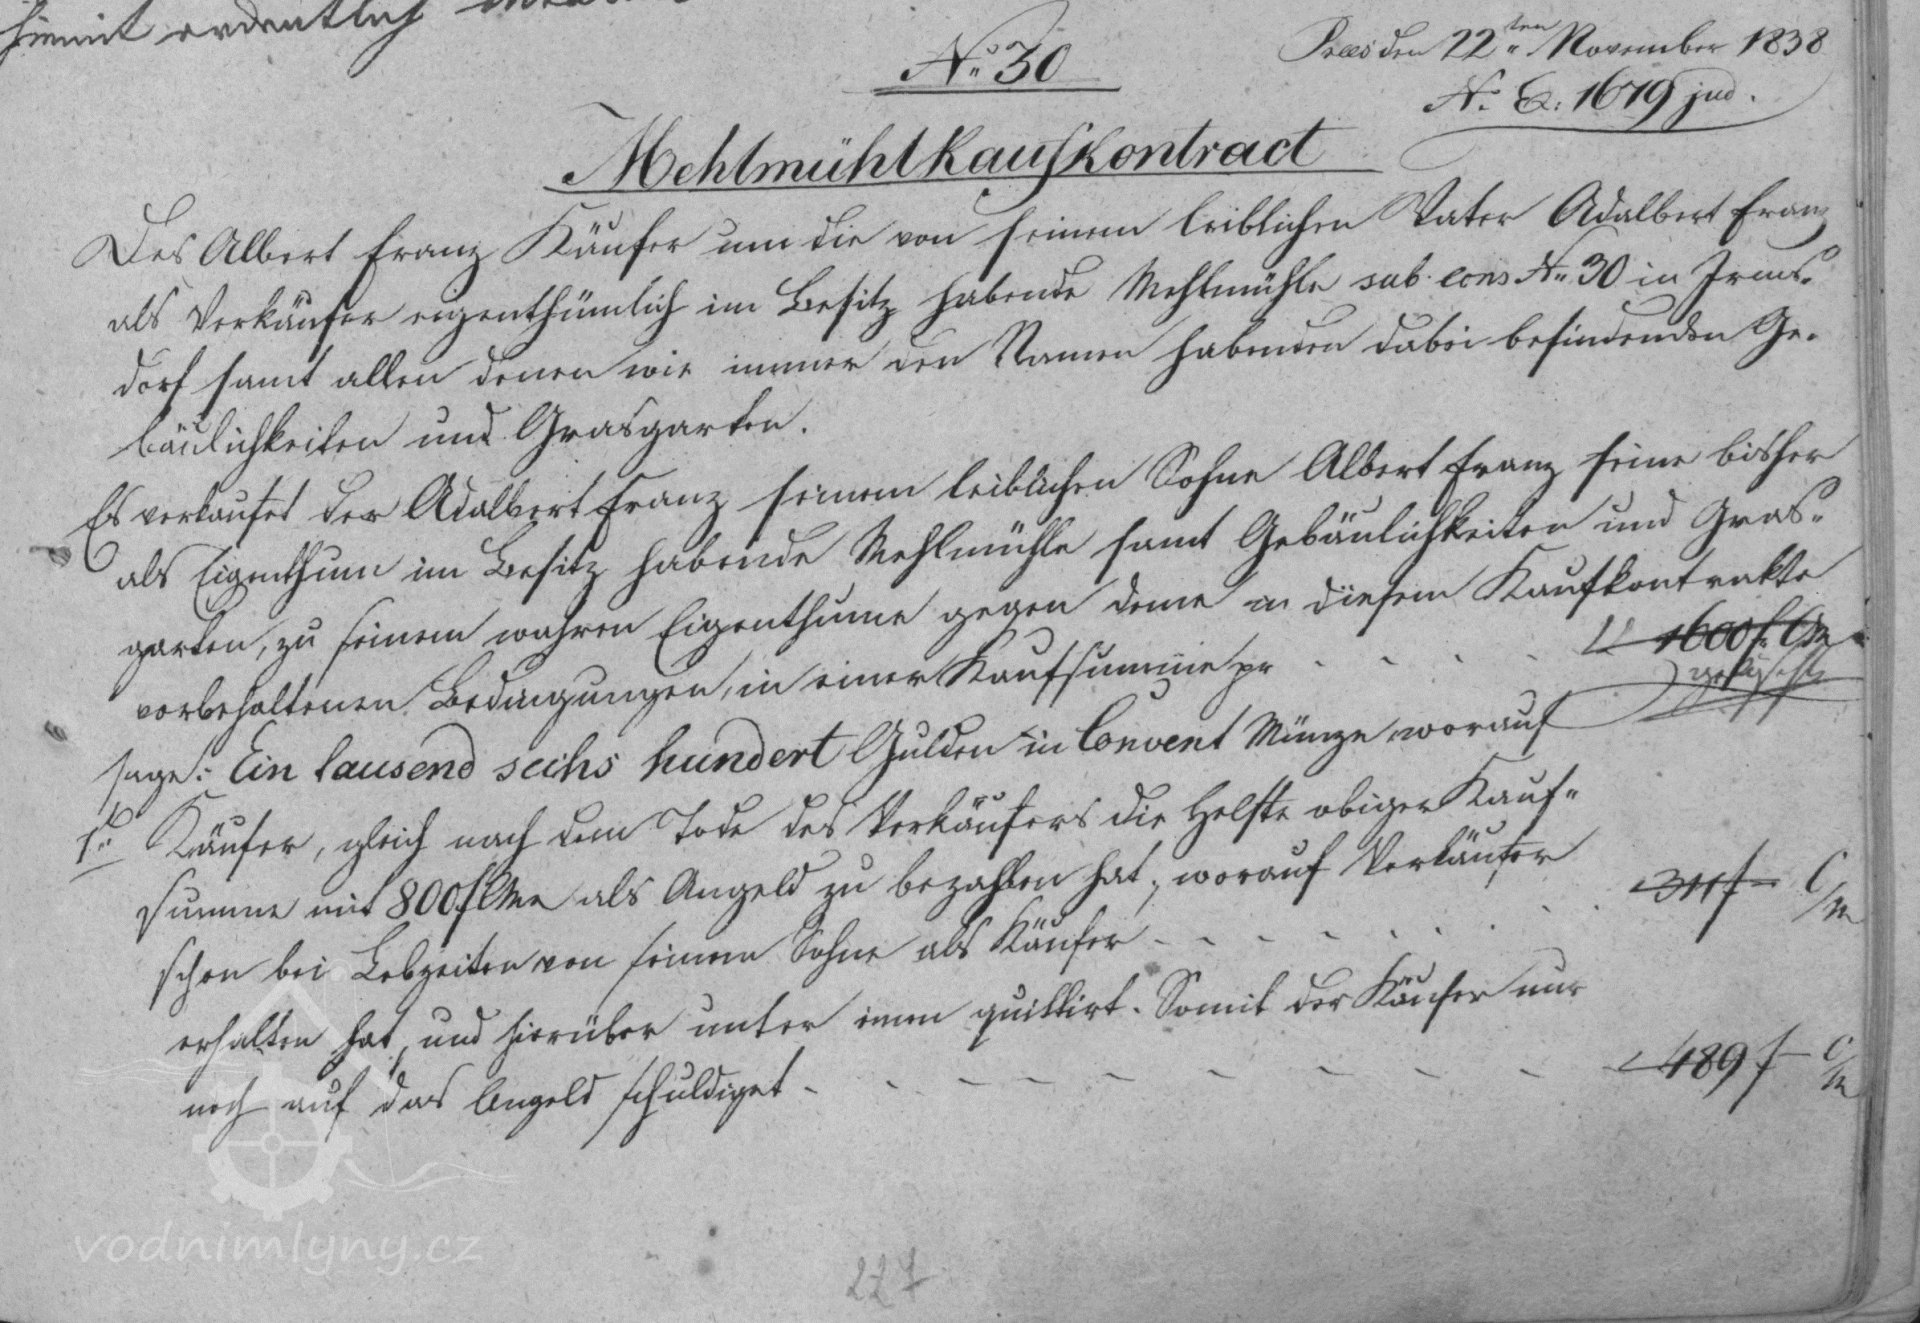 hiemit ordentlich
No 30
Praes den 22ten November 1838
No E: 1679 jud.
Mehlmühlkaufkontract
Des Albert Franz Käufer um die von seinem leiblichen Vater Adalbert Franz
als Verkäufer eigenthümlich im Besitz habende Mehlmühle sub cons No 30 in Irms-
dorf samt allen denen wie immer den Namen habenden dabei befindenden Ge-
bäulichkeiten und Grasgarten.
Es verkaufet der Adalbert Franz seinem leiblichen Sohne Albert Franz seine bisher
als Eigenthum im Besitz habende Mehlmühle samt Gebäulichkeiten und Gras-
garten, zu seinem wahren Eigenthume gegen deme in diesem Kaufkontrakte
vorbehaltenen Bedingungen, in einer Kaufsumme pr 1600 f CM
sage: Ein tausend sechs hundert Gulden in Convent Münze worauf
1tens Käufer, gleich nach dem Tode des Verkäufers die Helfte obiger Kauf-
summe mit 800 f CMe als Angeld zu bezahlen hat, worauf Verkäufer
schon bei Lebzeiten von seinem Sohne als Käufer 311 f C/M
erhalten hat, und hierüber unter einen quittirt. Somit der Käufer nur
noch auf das Angeld schuldiget 489 f C/M
vodnimlyny.cz
227